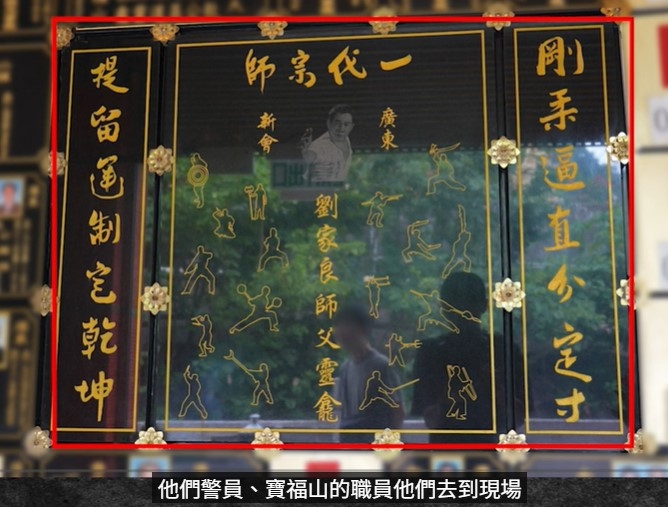 剛柔逼直分定寸
一代宗師
廣東
新會
劉家良師父靈龕
提留運制定乾坤
他們警員、寶福山的職員他們去到現場